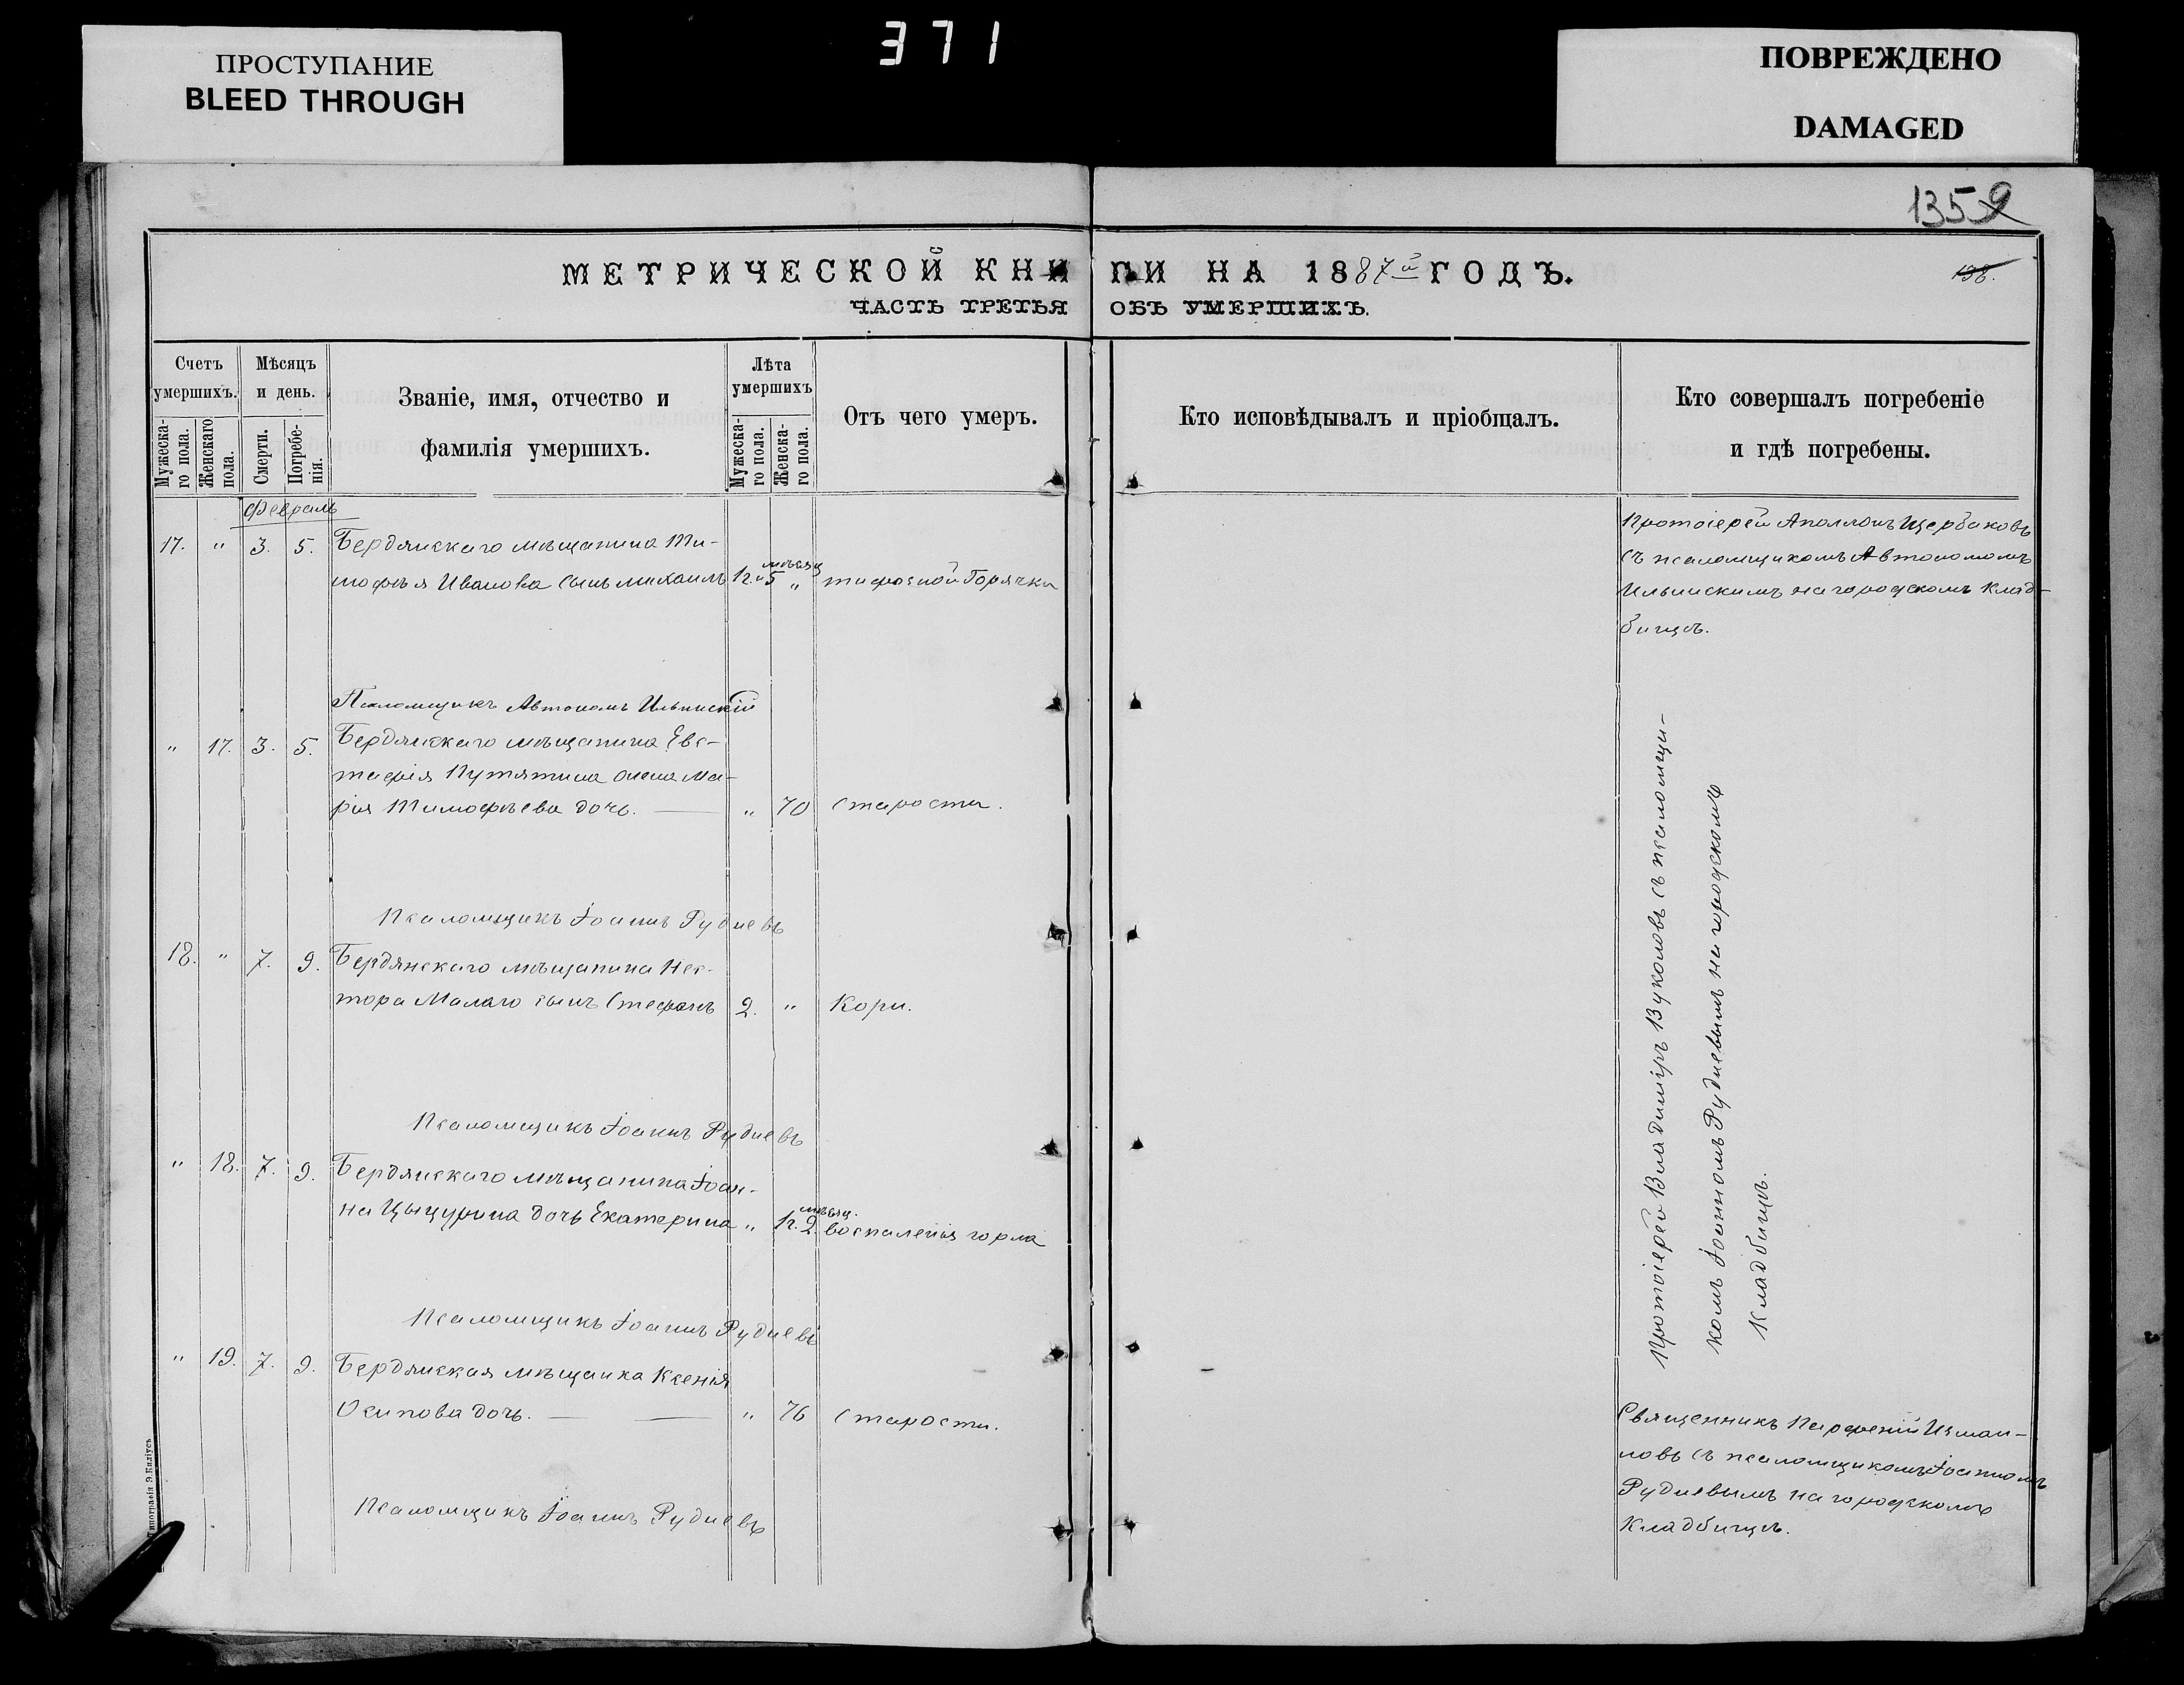 371
ПРОСТУПАНИЕ
BLEED THROUGH
ПОВРЕЖДЕНО
DAMAGED
1359
МЕТРИЧЕСКОЙ КНИГИ НА 1887й ГОДЪ.
138.
ЧАСТЬ ТРЕТЬЯ ОБЪ УМЕРШИХЪ.
Счетъ умершихъ.
Мужескаго пола.
Женскаго пола.
Мѣсяцъ и день.
Смерти.
Погребенія.
Званіе, имя, отчество и
фамилія умершихъ.
Лѣта умершихъ
Мужескаго пола.
Женскаго пола.
Отъ чего умеръ.
Кто исповѣдывалъ и пріобщалъ.
Кто совершалъ погребеніе
и гдѣ погребены.
Февраль
17. " 3. 5. Бердянскаго мѣщанина Ти-
мофѣя Иванова сынъ Михаилъ 1 г. и 5 мѣсяц " тифозной Горячки
Протоіерей Аполлонъ Щербаковъ
съ псаломщикомъ Автономомъ
Ильинскимъ на городскомъ клад-
бищѣ.
Псаломщикъ Автономъ Ильинскій
" 17. 3. 5. Бердянскаго мѣщанина Евс-
тафія Путятина жена Ма-
рія Тимофѣева дочь. — " 70 Старости.
Псаломщикъ Іоаннъ Рудневъ
18. " 7. 9. Бердянскаго мѣщанина Нес-
тора Малаго сынъ Стефанъ 2. " Кори.
Псаломщикъ Іоаннъ Рудневъ
" 18. 7. 9. Бердянскаго мѣщанина Іоан-
на Цыцурина дочь Екатерина " 1 г. 2 мѣсяц. воспаленія горла
Протоіерей Владиміръ Вуколовъ съ псаломщи-
комъ Іоанномъ Рудневымъ на городскомъ
Кладбищѣ.
Псаломщикъ Іоаннъ Рудневъ
" 19. 7. 9. Бердянская мѣщанка Ксенія
Осипова дочь. — — " 76 Старости.
Священникъ Парфеній Измаи-
ловъ съ псаломщикомъ Іоанномъ
Рудневымъ на городскомъ
Кладбищѣ.
Псаломщикъ Іоаннъ Рудневъ